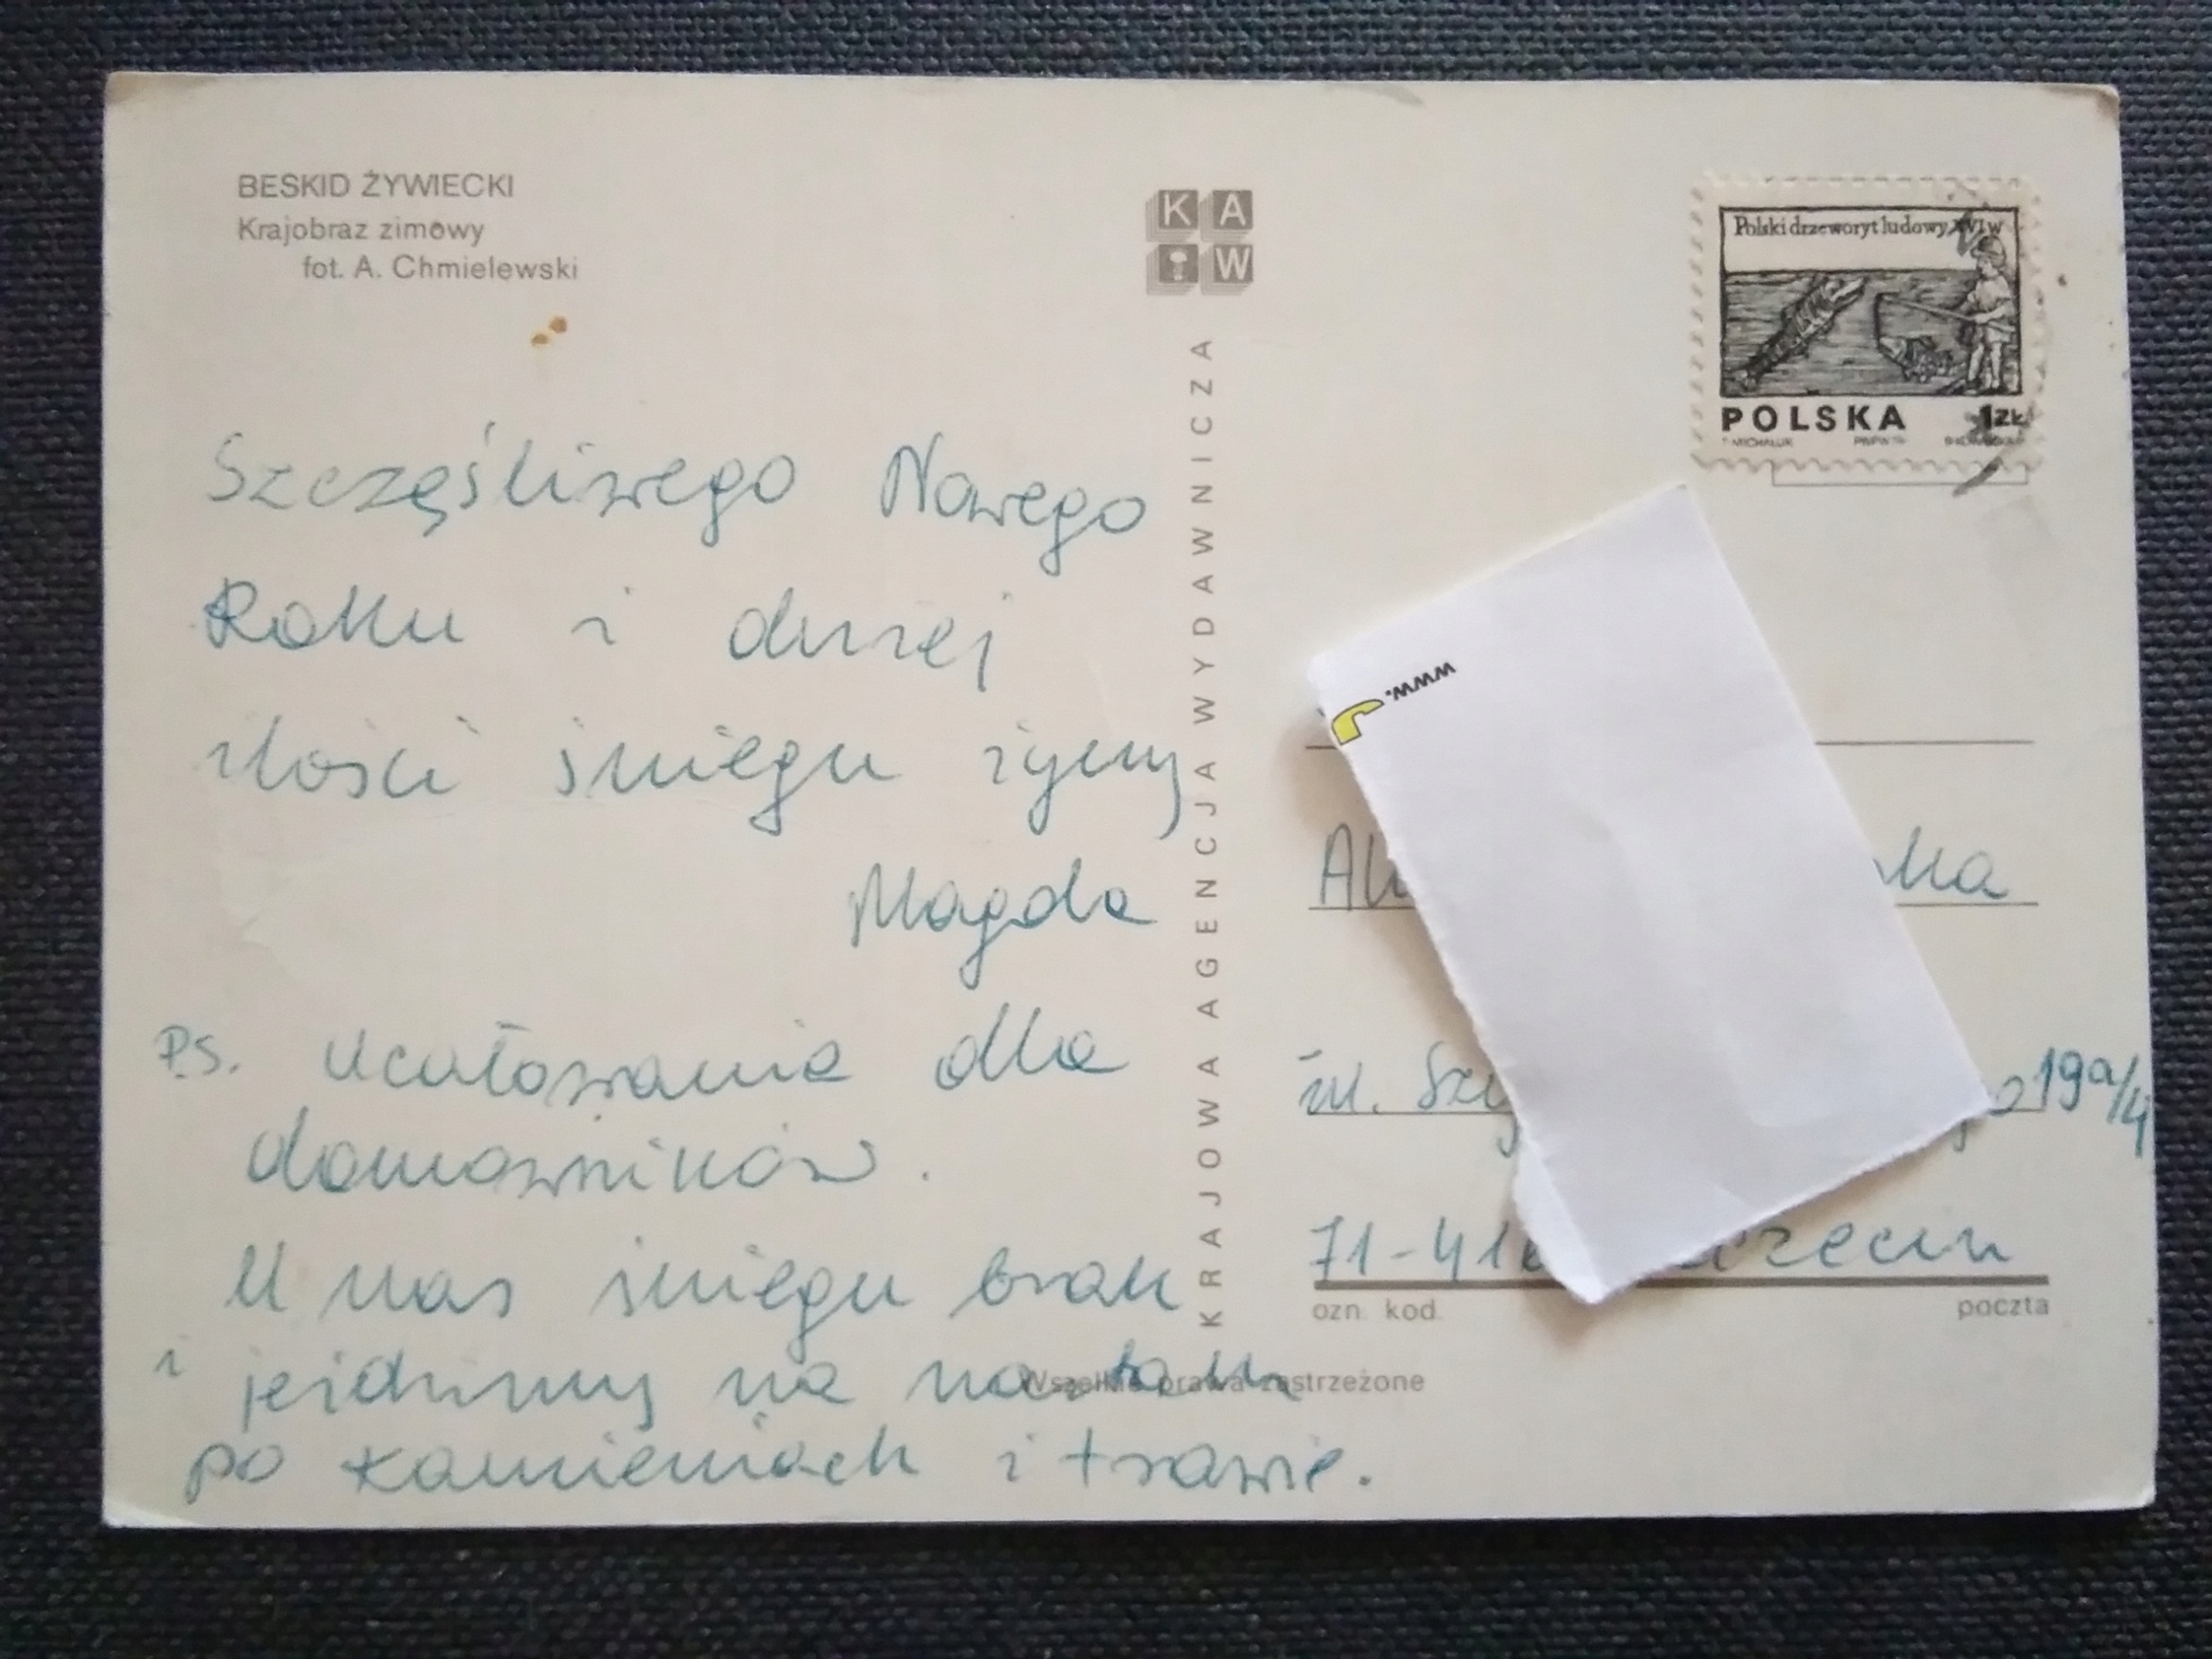 BESKID ŻYWIECKI
Krajobraz zimowy
fot. A. Chmielewski
K A
W
KRAJOWA AGENCJA WYDAWNICZA
Szczęśliwego Nowego
Roku i dużej
ilości śniegu życzy
Magda
P.S. Ucałowania dla
domowników.
U nas śniegu brak
i jeździmy na nartach
po kamieniach i trawie.
Wszelkie prawa zastrzeżone
Polski drzeworyt ludowy XVI w
POLSKA 1ZŁ
T. MICHALUK PWPW
www.
ul. 19a/4
71-41
ozn. kod. poczta